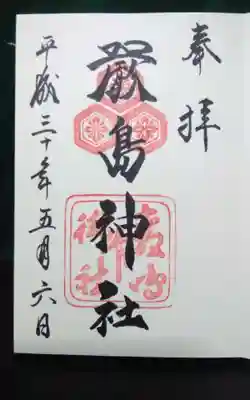 奉拝
厳島神社
平成三十年五月六日
嚴島神社